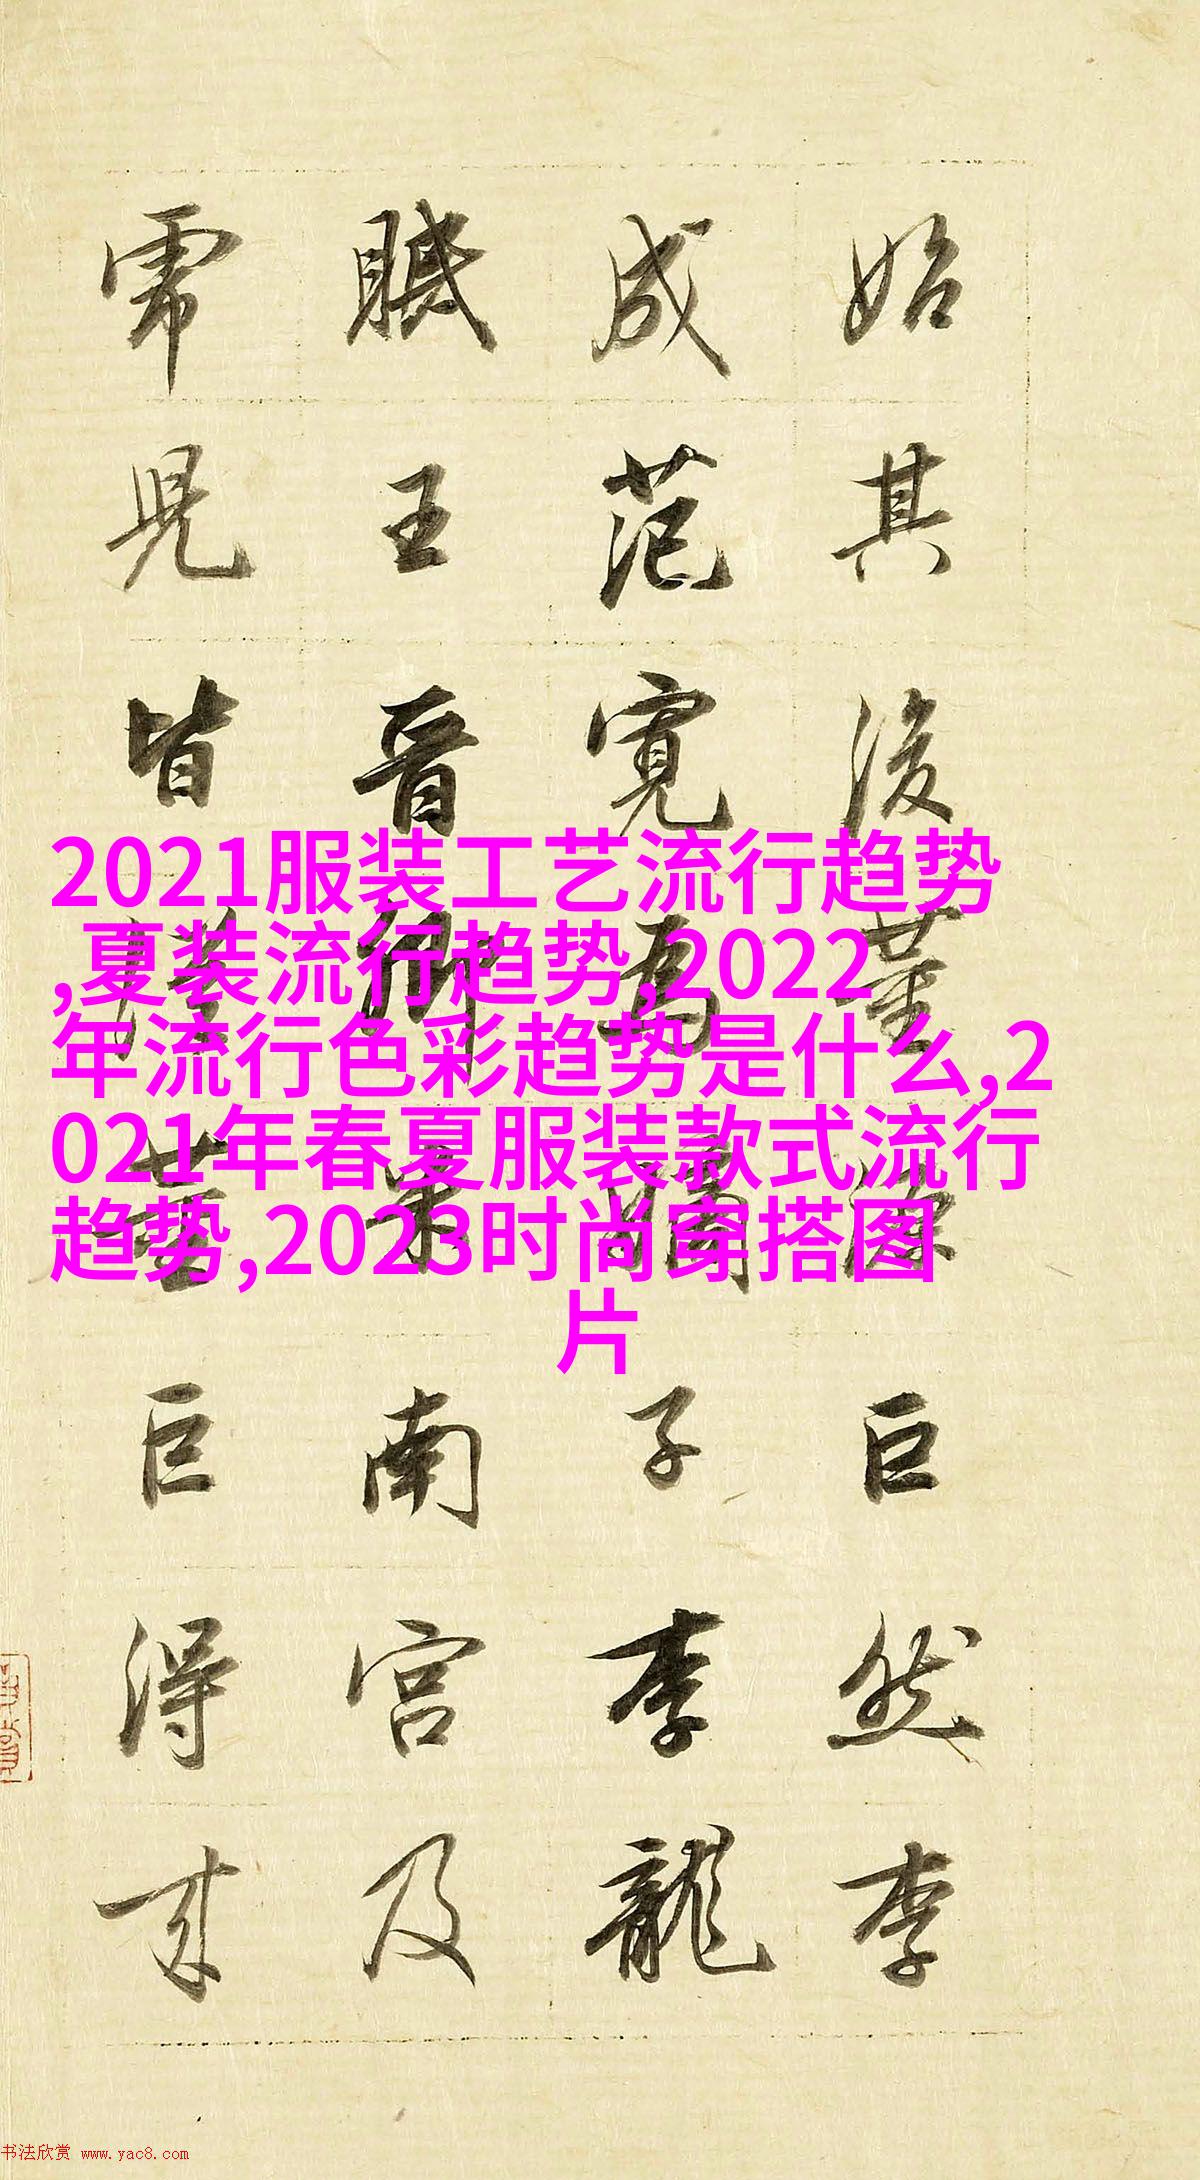 始其後董源巨然李
成范寬為嫡子李龍
眠王晉卿米南宮及
虎兒皆從董巨得来
2021服装工艺流行趋势
,夏装流行趋势,2022
年流行色彩趋势是什么,2
021年春夏服装款式流行
趋势,2023时尚穿搭图
片
书法欣赏 www.yac8.com